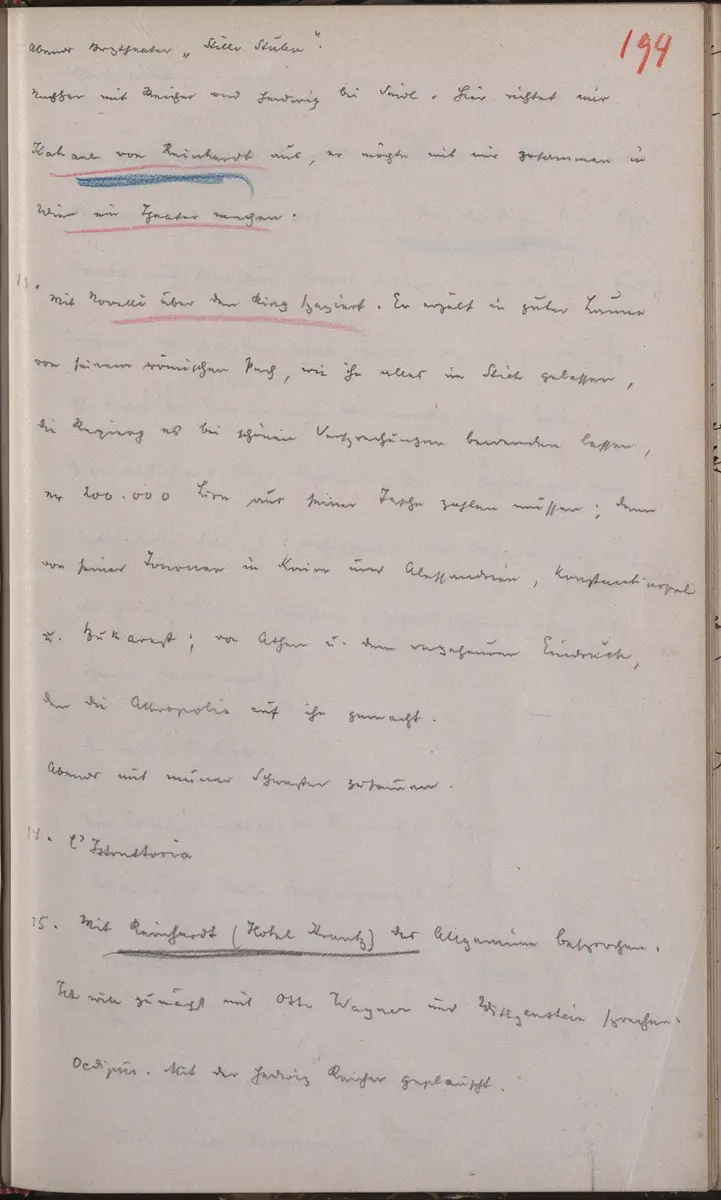 194
Abends Burgtheater „Stille Stuben".
Nachher mit Reicher und Hedwig bei Seidl. Hier richtet mir
Kahane von Reinhardt aus, er möchte mit mir zusammen in
Wien ein Theater machen.
13. Mit Novelli über den Ring spaziert. Er erzält in guter Laune
von seinem römischen Pech, wie ihn alles im Stich gelassen,
die Regierg es bei schönen Versprechungen bewenden lassen,
er 200.000 Lire aus seiner Tasche zahlen müssen; dann
von seiner Tournee in Kairo und Alessandrien, Konstantinopel
u. Bukarest; von Athen u. dem ungeheuren Eindruck,
den die Akropolis auf ihn gemacht.
Abends mit meiner Schwester zusammen.
14. L'Istruttoria
15. Mit Reinhardt (Hotel Krantz) das Allgemeine besprochen.
Ich will zunächst mit Otto Wagner und Wittgenstein sprechen.
Oedipus. Mit der Hedwig Reicher geplauscht.